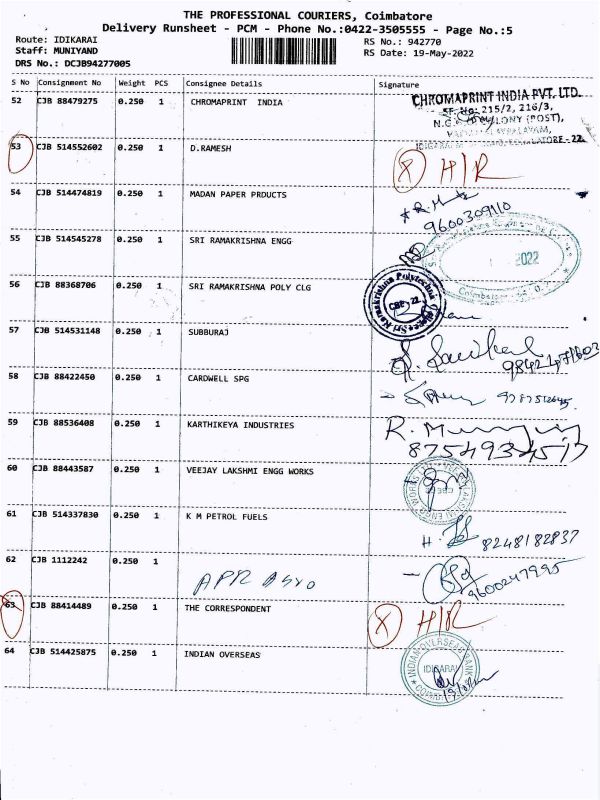 THE PROFESSIONAL COURIERS, Coimbatore
Delivery Runsheet - PCM - Phone No.:0422-3505555 - Page No.:5
Route: IDIKARAI RS No.: 942770
Staff: MUNIYAND RS Date: 19-May-2022
DRS No.: DCJB94277005
S No Consignment No Weight PCS Consignee Details Signature
52 CJB 88479275 0.250 1 CHROMAPRINT INDIA
CHROMAPRINT INDIA PVT. LTD.
SF. No: 215/2, 216/3,
COLONY (POST),
COIMBATORE - 22
53 CJB 514552602 0.250 1 D.RAMESH
X H/R
54 CJB 514474819 0.250 1 MADAN PAPER PRDUCTS
9600309110
55 CJB 514545278 0.250 1 SRI RAMAKRISHNA ENGG
2022
Coimbatore
56 CJB 88368706 0.250 1 SRI RAMAKRISHNA POLY CLG
Sri Ramakrishna Polytechnic
CBE-22
57 CJB 514531148 0.250 1 SUBBURAJ
58 CJB 88422450 0.250 1 CARDWELL SPG
59 CJB 88536408 0.250 1 KARTHIKEYA INDUSTRIES
8754934517
60 CJB 88443587 0.250 1 VEEJAY LAKSHMI ENGG WORKS
61 CJB 514337830 0.250 1 K M PETROL FUELS
8248182837
62 CJB 1112242 0.250 1
9600247995
63 CJB 88414489 0.250 1 THE CORRESPONDENT
X H/R
64 CJB 514425875 0.250 1 INDIAN OVERSEAS
INDIAN OVERSEAS BANK
IDIGARAI